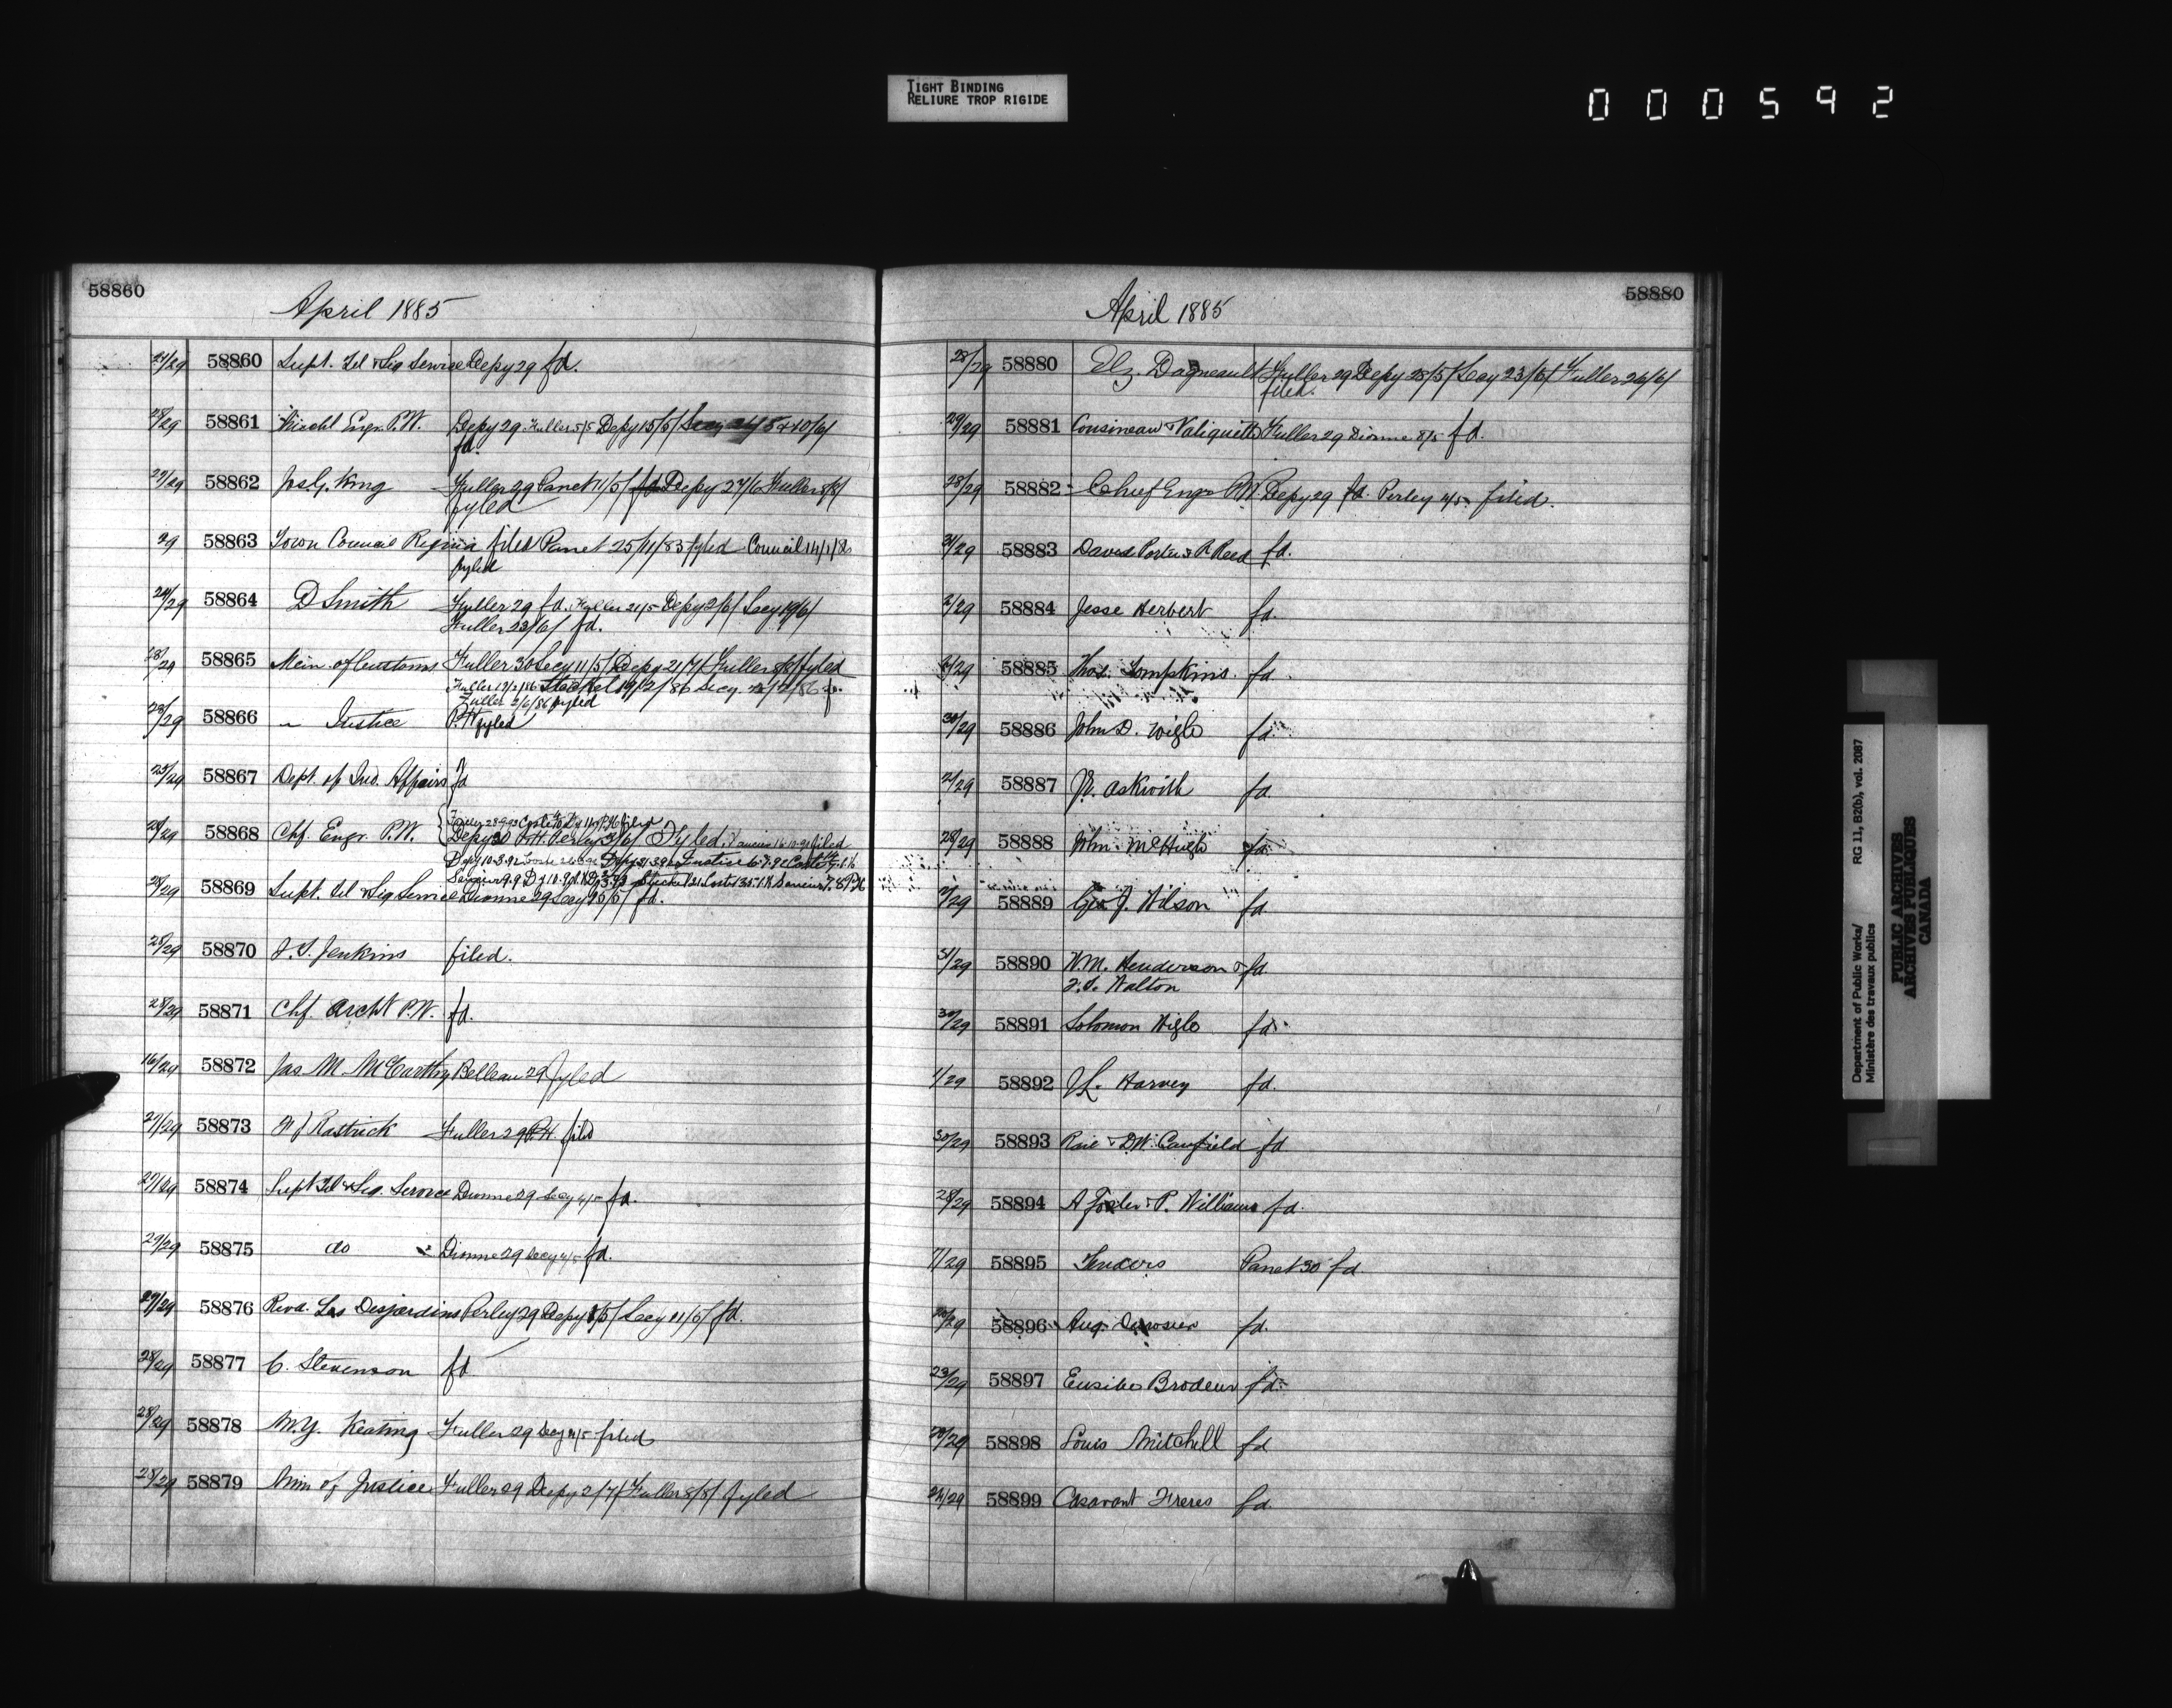 TIGHT BINDING
RELIURE TROP RIGIDE
000592
58860
April 1885
27/29 58860 Supt. Tel & Sig Service Depy 29 fd.
28/29 58861 Engr. P.W. Depy 29 Fuller 5/5 Depy 15/5/ & 10/6/
fd.
27/29 58862 Jos. G. King Fuller 29 Panet 11/5/ fd Depy 27/6 Fuller 8/8/
fyled
29 58863 Town Council Regina filed Panet 25/11/83 fyled Council 14/1/
fyled
24/29 58864 D Smith Fuller 29 fd. Fuller 21/5 Depy 2/6/ Secy 19/6/
Fuller 23/6/ fd.
28/29 58865 Min. of Customs Fuller 30 Secy 11/5/ Depy 21/7/ Fuller 8/8/ fyled
Fuller 17/2/86 Steckel 19/2/86 Secy /2/86
Fuller 2/6/86 fyled
28/29 58866 " Justice P.H. fyled
25/29 58867 Dept. of Ind. Affairs fd
28/29 58868 Chf. Engr. P.W. Depy 30 P.H. Perley 3/6/ Fyled filed
28/29 58869 Supt. Tel & Sig Service Dionne 29 Secy fd.
28/29 58870 J. S. Jenkins filed.
28/29 58871 Chf. Archt P.W. fd.
16/29 58872 Jas. M. McCarthy Belleau 29 fyled
27/29 58873 Rastrick Fuller 29 P.H. filed
27/29 58874 Supt Tel & Sig. Service Dionne 29 Secy 4/5 fd.
27/29 58875 do Dionne 29 Secy 4/5 fd.
27/29 58876 Revd. Ls Desjardins Perley 29 Depy /5/ Secy 11/5/ fd.
28/29 58877 C. Stevenson fd
28/29 58878 W.Y. Keating Fuller 29 Secy 4/5 filed
28/29 58879 Min of Justice Fuller 29 Depy 2/7/ Fuller 8/8/ fyled
58880
April 1885
28/29 58880 Elz. Dagneault Fuller 29 Depy 28/5/ Secy 23/6/ Fuller 26/6/
filed.
29/29 58881 Cousineau & Valiquette Fuller 29 Dionne 8/5 fd.
28/29 58882 Chief Engr P.W. Depy 29 fd. Perley 4/5 filed.
31/29 58883 David Porter & R Reed fd.
2/29 58884 Jesse Herbert fd.
58885 Thos. Tompkins. fd.
30/29 58886 John D. Wigle fd.
2/29 58887 Askwith fd.
28/29 58888 John McHugh fd.
2/29 58889 Geo J. Wilson fd
31/29 58890 W.M. Henderson & fd
Walton
30/29 58891 Solomon Wigle fd.
1/29 58892 Harvey fd.
30/29 58893 & D.W. Canfield fd
28/29 58894 A Foster & P. Williams fd.
7/29 58895 Tenders Panet 30 fd.
20/29 58896 Aug. Derosier fd.
23/29 58897 Eusibe Brodeur fd.
20/29 58898 Louis Mitchell fd
24/29 58899 Casavant Freres fd.
Department of Public Works/ RG 11, B2(b), vol. 2087
Ministère des travaux publics
PUBLIC ARCHIVES
ARCHIVES PUBLIQUES
CANADA